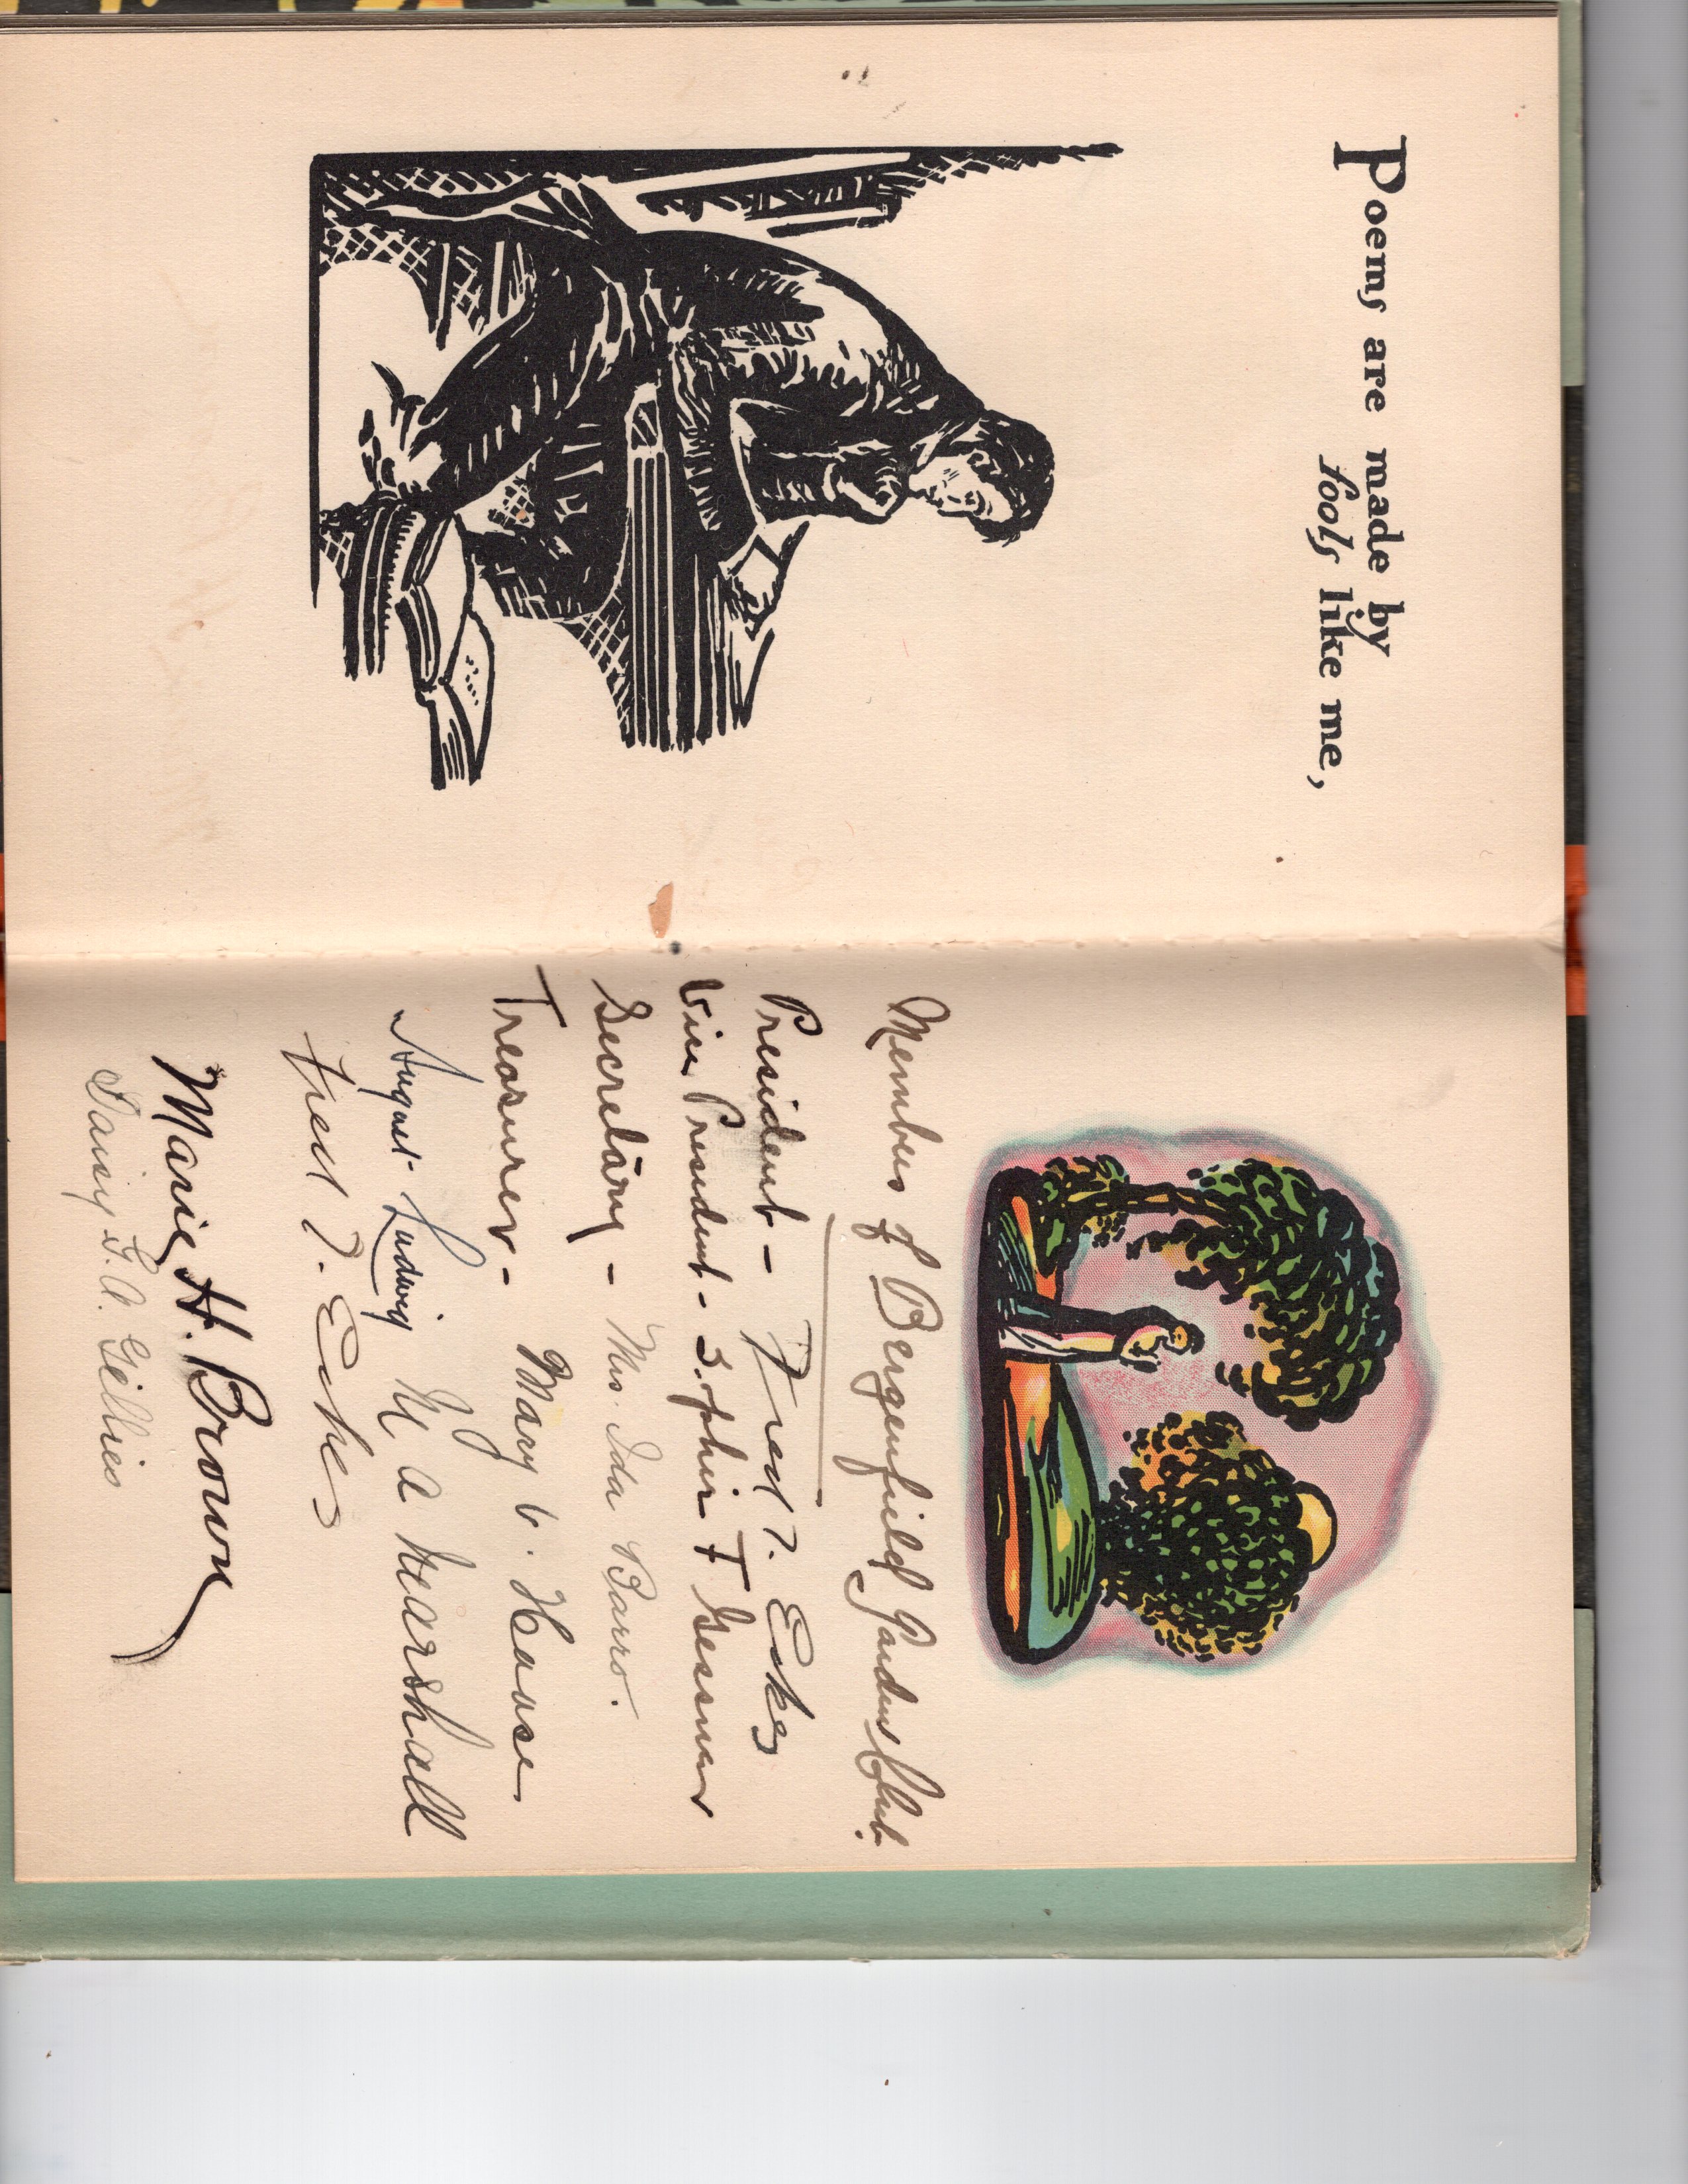 Poems are made by
fools like me,
Members of Bergenfield Garden Club.
President - Fred T. Eckes
Vice President - Sophie T Gessner
Secretary - Mrs. Ida Barro.
Treasurer - Mary C. House
August Ludwig M A Marshall
Fred T. Eckes
Marie H. Brown
Daisy G. A. Gillies